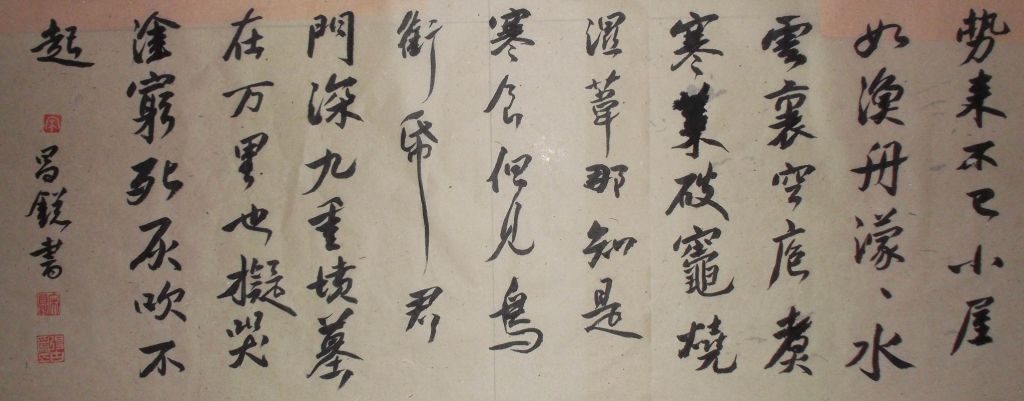 势来不已小屋
如渔舟濛、水
雲裏空庖煮
寒菜破竈燒
濕葦那知是
寒食但見烏
銜帋君
門深九重墳墓
在万里也擬哭
塗窮死灰吹不
起
昌鋭書